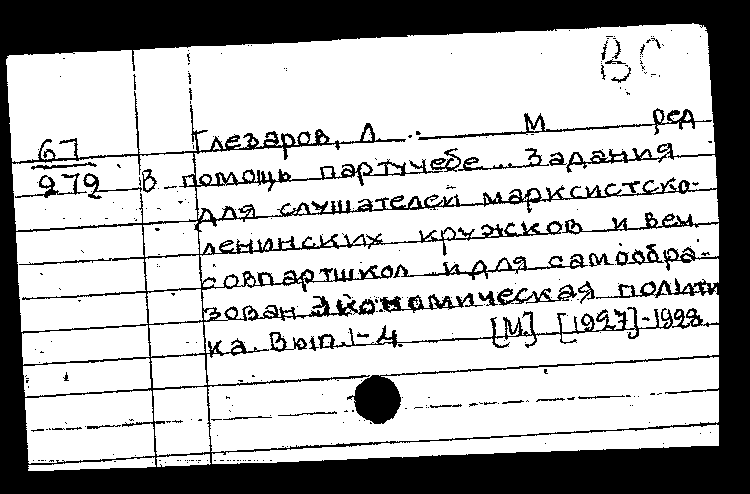 ВС
Глезаров, Л. М ред
67
272 В помощь партучебе... Задания
для слушателей марксистско-
ленинских кружков и веч.
совпартшкол и для самообра-
зован Экономическая полити
ка. Вып. 1-4 [М] [1927]-1928.